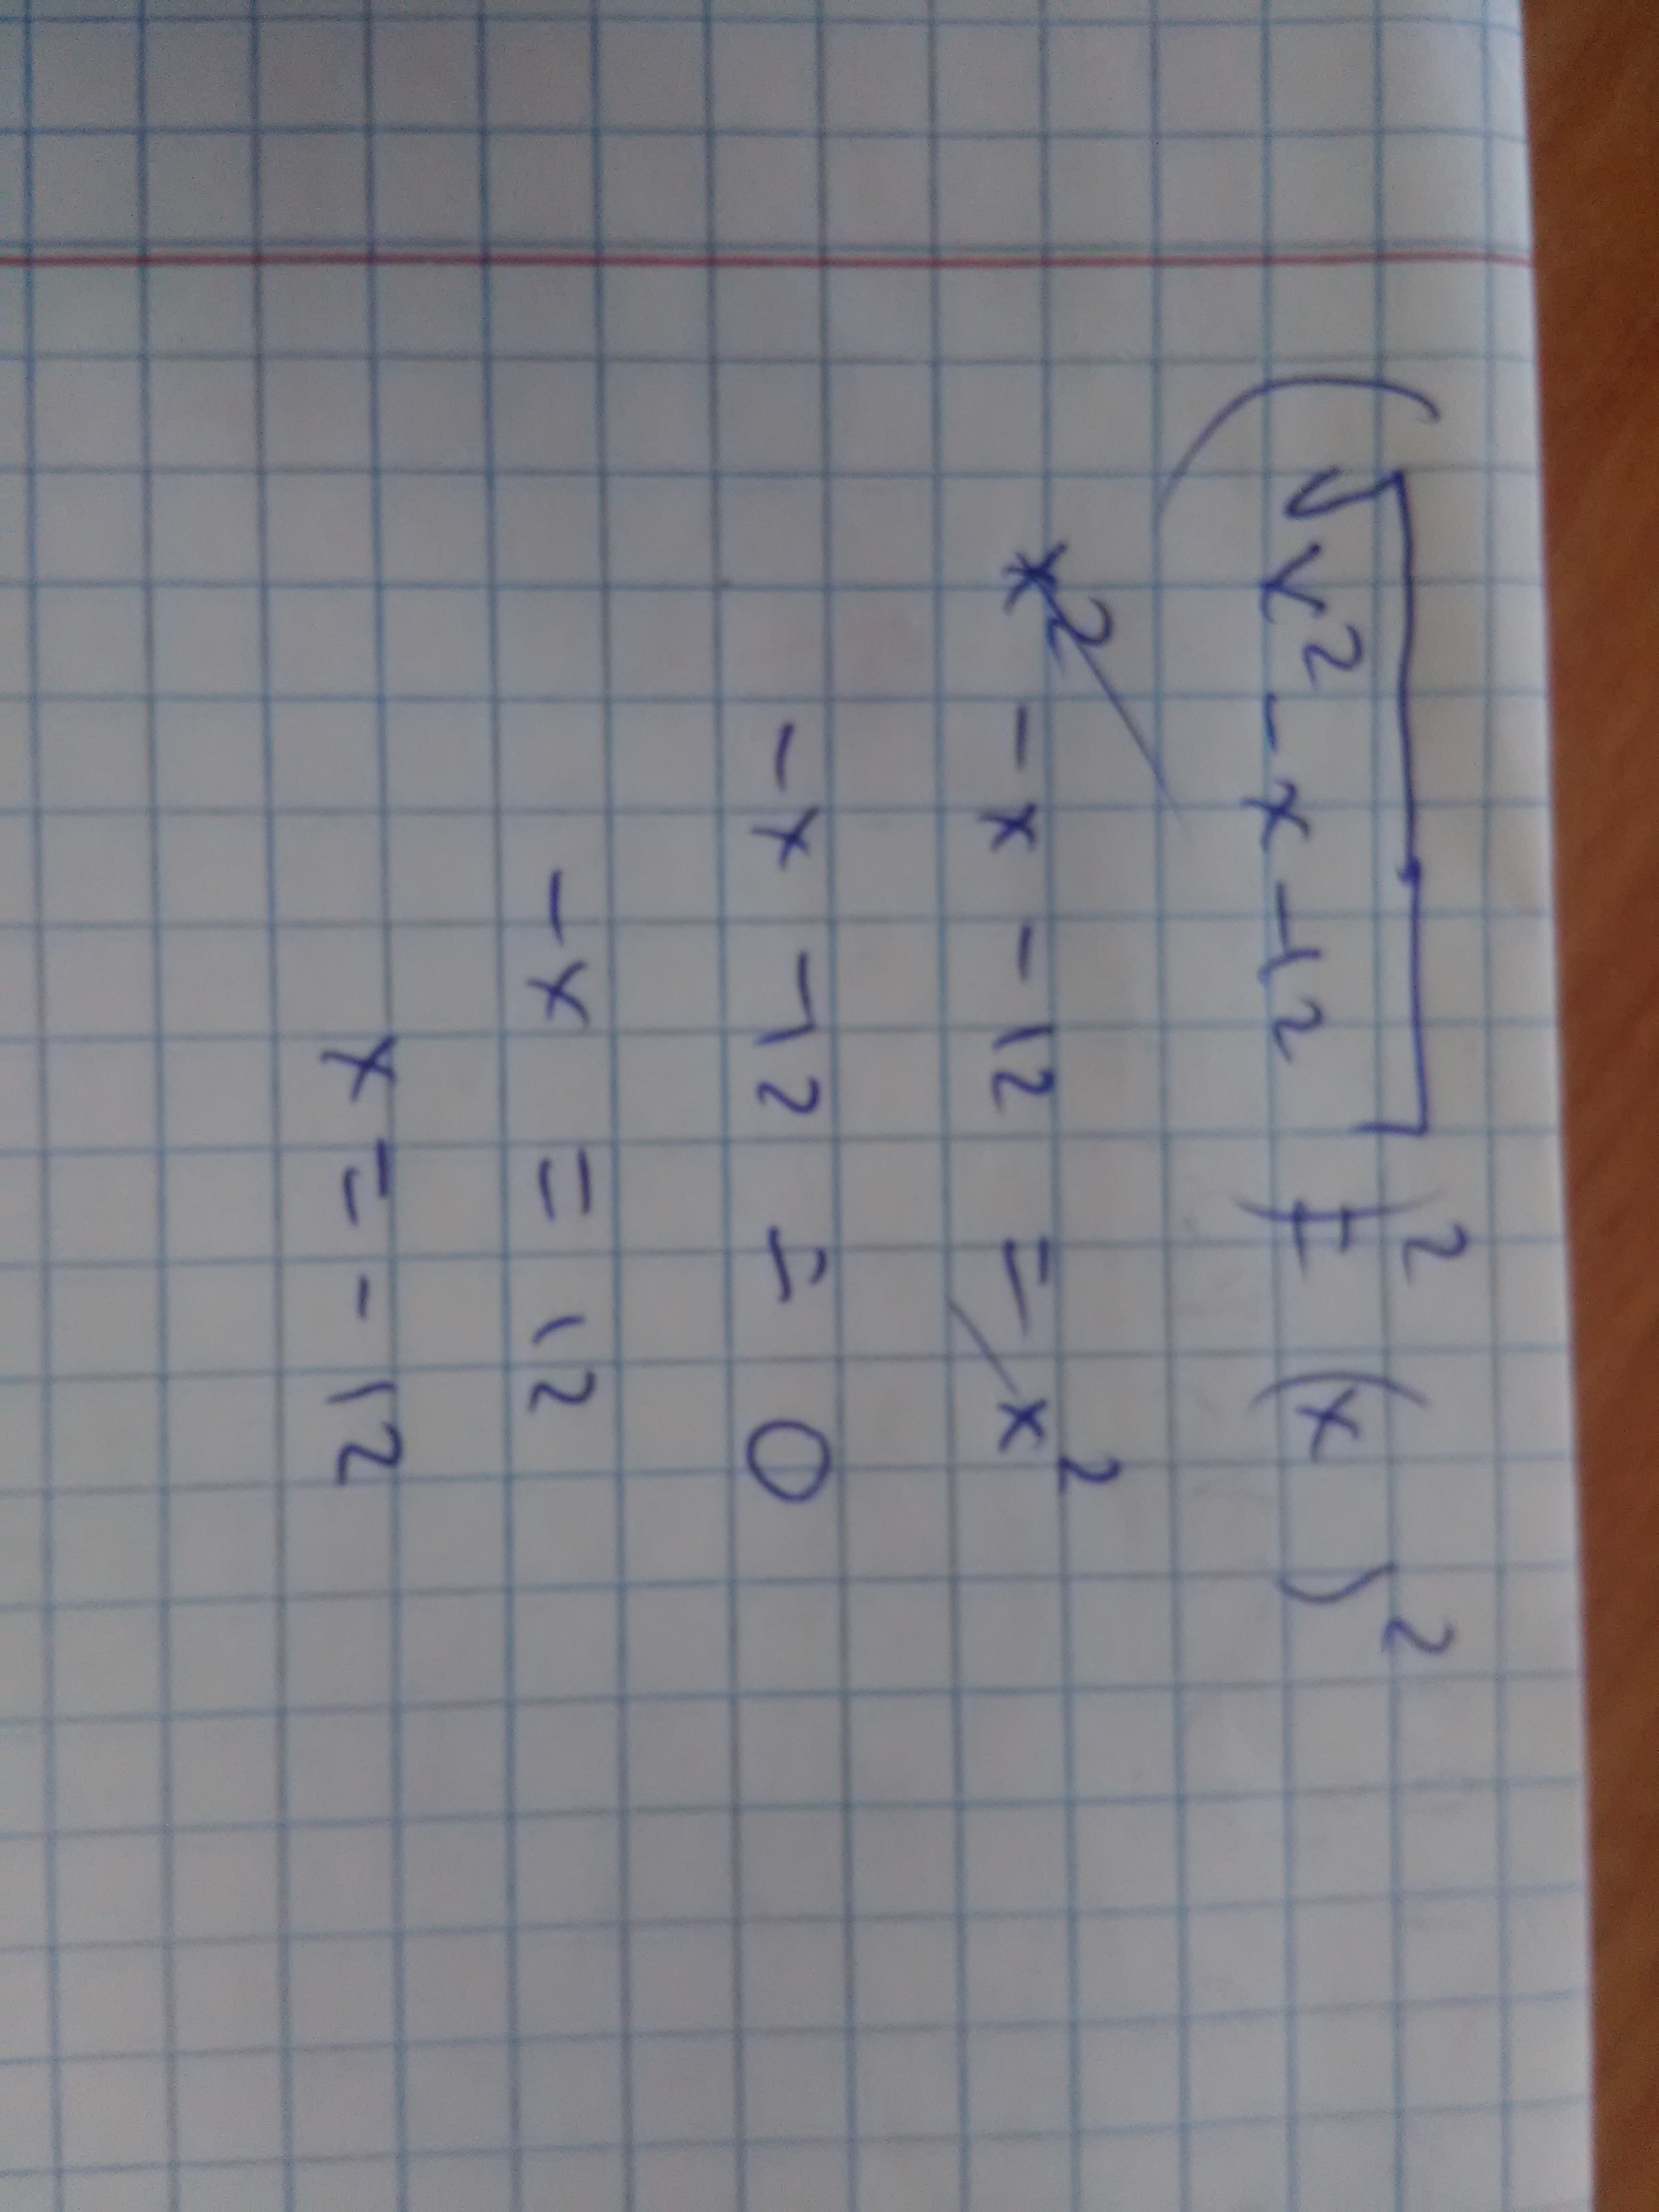 (√x² - x - 12)² = (x)²
x² - x - 12 = x²
- x - 12 = 0
- x = 12
x = - 12